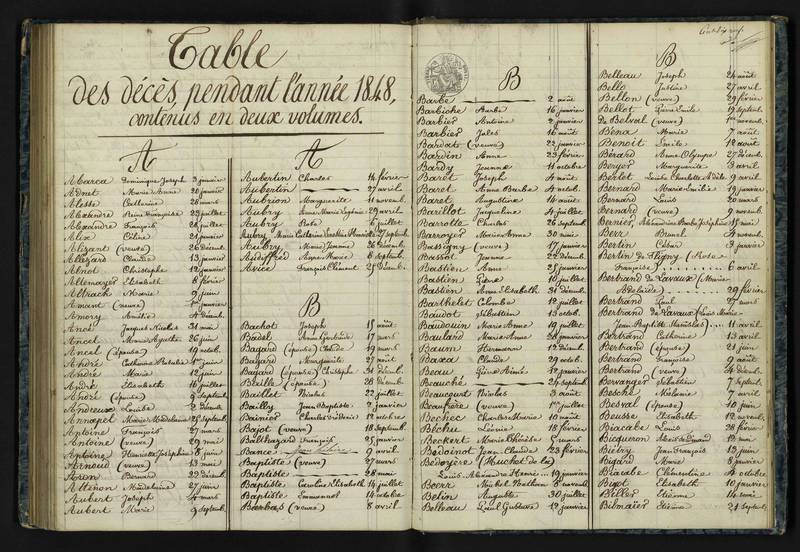 Table
des décès, pendant l'année 1848,
contenus en deux volumes.
A
Abarca Dominique Joseph 3 janvier
Adnet Marie Anne 20 janvier
Alesse Catherine 28 mars
Alexandre Reine Françoise 23 juillet
Alexandre François 28 juillet
Alix Céline 22 janvier
Alizant (veuve) 26 décemb.
Allezard Claude 13 janvier
Alnot Christophe 12 janvier
Altemayer Elisabeth 8 février
Altrach Marie 9 juin
Amant (veuve) 1er janvier
Amory Amélie 4 décemb.
Ancé Jacques Nicolas 31 mai
Ancel Marie Agathe 26 juin
Ancel (épouse) 19 octob.
André Catherine 1er juin
André Marie 12 juin
André Elisabeth 16 juillet
Anoel (épouse) 9 septemb.
Andreux Louise 2 décemb.
Annapel Marie Madeleine 25 septemb.
Antoine François 27 mars
Antoine (veuve) 29 mai
Antoine Henriette Joséphine 8 juin
Arnoud (veuve) 13 mai
Aron Bernard 22 décemb.
Attenon Madeleine 27 juin
Aubert Joseph 4 mars
Aubert Marie 9 septemb.
A
Aubertin Charles 14 février
Aubertin 27 avril
Aubrion Marguerite 11 novemb.
Aubry Anne Marie Eugénie 29 avril
Aubry Rose 6 juillet
Aubry Marie Catherine 27 septemb.
Aubry Marie Jeanne 26 décemb.
Audiffred Anne Marie 8 septemb.
Avice François Clément 25 décemb.
B
Bachot Joseph 15 août
Badel Anne Gertrude 17 mars
Bagard (épouse) Claude 19 août
Bagard Marguerite 27 août
Bagard (épouse) Christophe 31 décemb.
Baille (épouse) 28 décemb.
Baillet Nicolas 22 juillet
Bailly Jean Baptiste 7 janvier
Bainier Charles Frédéric 12 novemb.
Bajot (veuve) 18 septemb.
Balthazard François 25 janvier
Bance 9 avril
Baptiste (veuve) 27 avril
Baptiste 28 mai
Baptiste Caroline Elisabeth 14 juillet
Baptiste Emmanuel 14 octobre
Barbas (veuve) 8 avril
B
Barbe 2 août
Barbiche Barbe 16 janvier
Barbier Antoine 2 janvier
Barbier Jules 16 août
Bardats (veuve) 22 janvier
Bardin Anne 23 février
Bardy Jeanne 11 octobre
Baret Joseph 4 août
Baret Anne Barbe 4 octob.
Baret Augustine 14 août
Barillot Jacqueline 4 juillet
Barrotte Charles 16 septemb.
Barroyer Marie Anne 30 mai
Bassigny (veuve) 17 janvier
Bassot Jeanne 22 décemb.
Bastien Anne 25 janvier
Bastien Pierre 10 juillet
Bastien Anne Elisabeth 31 décemb.
Barthelet Colombe 12 juillet
Baudot Sébastien 13 octob.
Baudouin Marie Anne 19 juillet
Baulard Marie Anne 28 janvier
Baum Hermann 12 décemb.
Baxca Claude 29 octob.
Beau Pierre Aimé 12 janvier
Beauché 24 septemb.
Beaucourt Nicolas 3 août
Beaufière (veuve) 1er juillet
Bechec Charles Marie 10 août
Béchu Léonie 18 février
Beckert Marie Thérèse 5 mars
Bedoinot Jean Claude 23 février
Bedoyère (Huchet de la)
Louis Alexandre Henri 19 janvier
Beerr Michel Nathan 8 novemb.
Belin Auguste 30 juillet
Belleau Paul Gustave 19 janvier
B
Belleau Joseph 24 août
Bello Justine 27 avril
Bellon (veuve) 29 février
Bellot Pierre Emile 19 septemb.
De Belval (veuve) 1er novemb.
Béna Marie 7 août
Benoit Emile 18 août
Bérard Anne Olympe 27 décemb.
Berger Marguerite 3 avril
Berlet Louis Charlotte Adèle 9 avril
Bernard Marie Emilie 19 janvier
Bernard Louis 20 mars
Bernard (veuve) 9 novemb.
Bernier 15 mai
Berr Brunel 3 novemb.
Bertin César 3 janvier
Bertin De Fligny (Rose
Françoise) 6 avril
Bertrand de Lavaux (Marie
Adelaïde) 29 février
Bertrand Paul 27 mars
Bertrand de Lavaux (Louis Marie
Jean Baptiste Stanislas) 11 avril
Bertrand Catherine 13 avril
Bertrand (épouse) 21 juin
Bertrand Françoise 9 août
Bertrand (veuve) 24 décemb.
Bervanger Sébastien 7 septemb.
Besché Mélanie 7 avril
Besval (épouse) 10 juin
Beusse Elisabeth 12 novemb.
Biacabe Louis 28 février
Bicqueron 12 mai
Biétry Jean François 13 juin
Bigard Marie 8 janvier
Biacabe Clémentine 4 octobre
Bigot Elisabeth 10 janvier
Biller Etienne 14 mai
Bilmaïer Etienne 21 septemb.